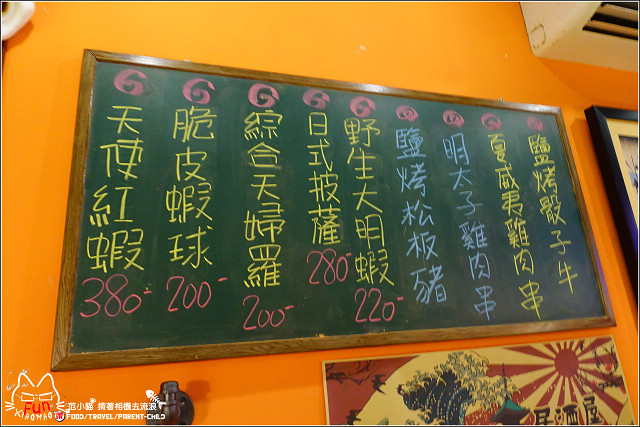 鹽烤骰子牛
夏威夷雞肉串
明太子雞肉串
鹽烤松板豬
野生大明蝦
220-
日式披薩
280-
綜合天婦羅
200-
脆皮蝦球
200-
天使紅蝦
380-
居酒屋
FUN
KIROMAO
范小貓 揹著相機去流浪
FOOD/TRAVEL/PARENT-CHILD